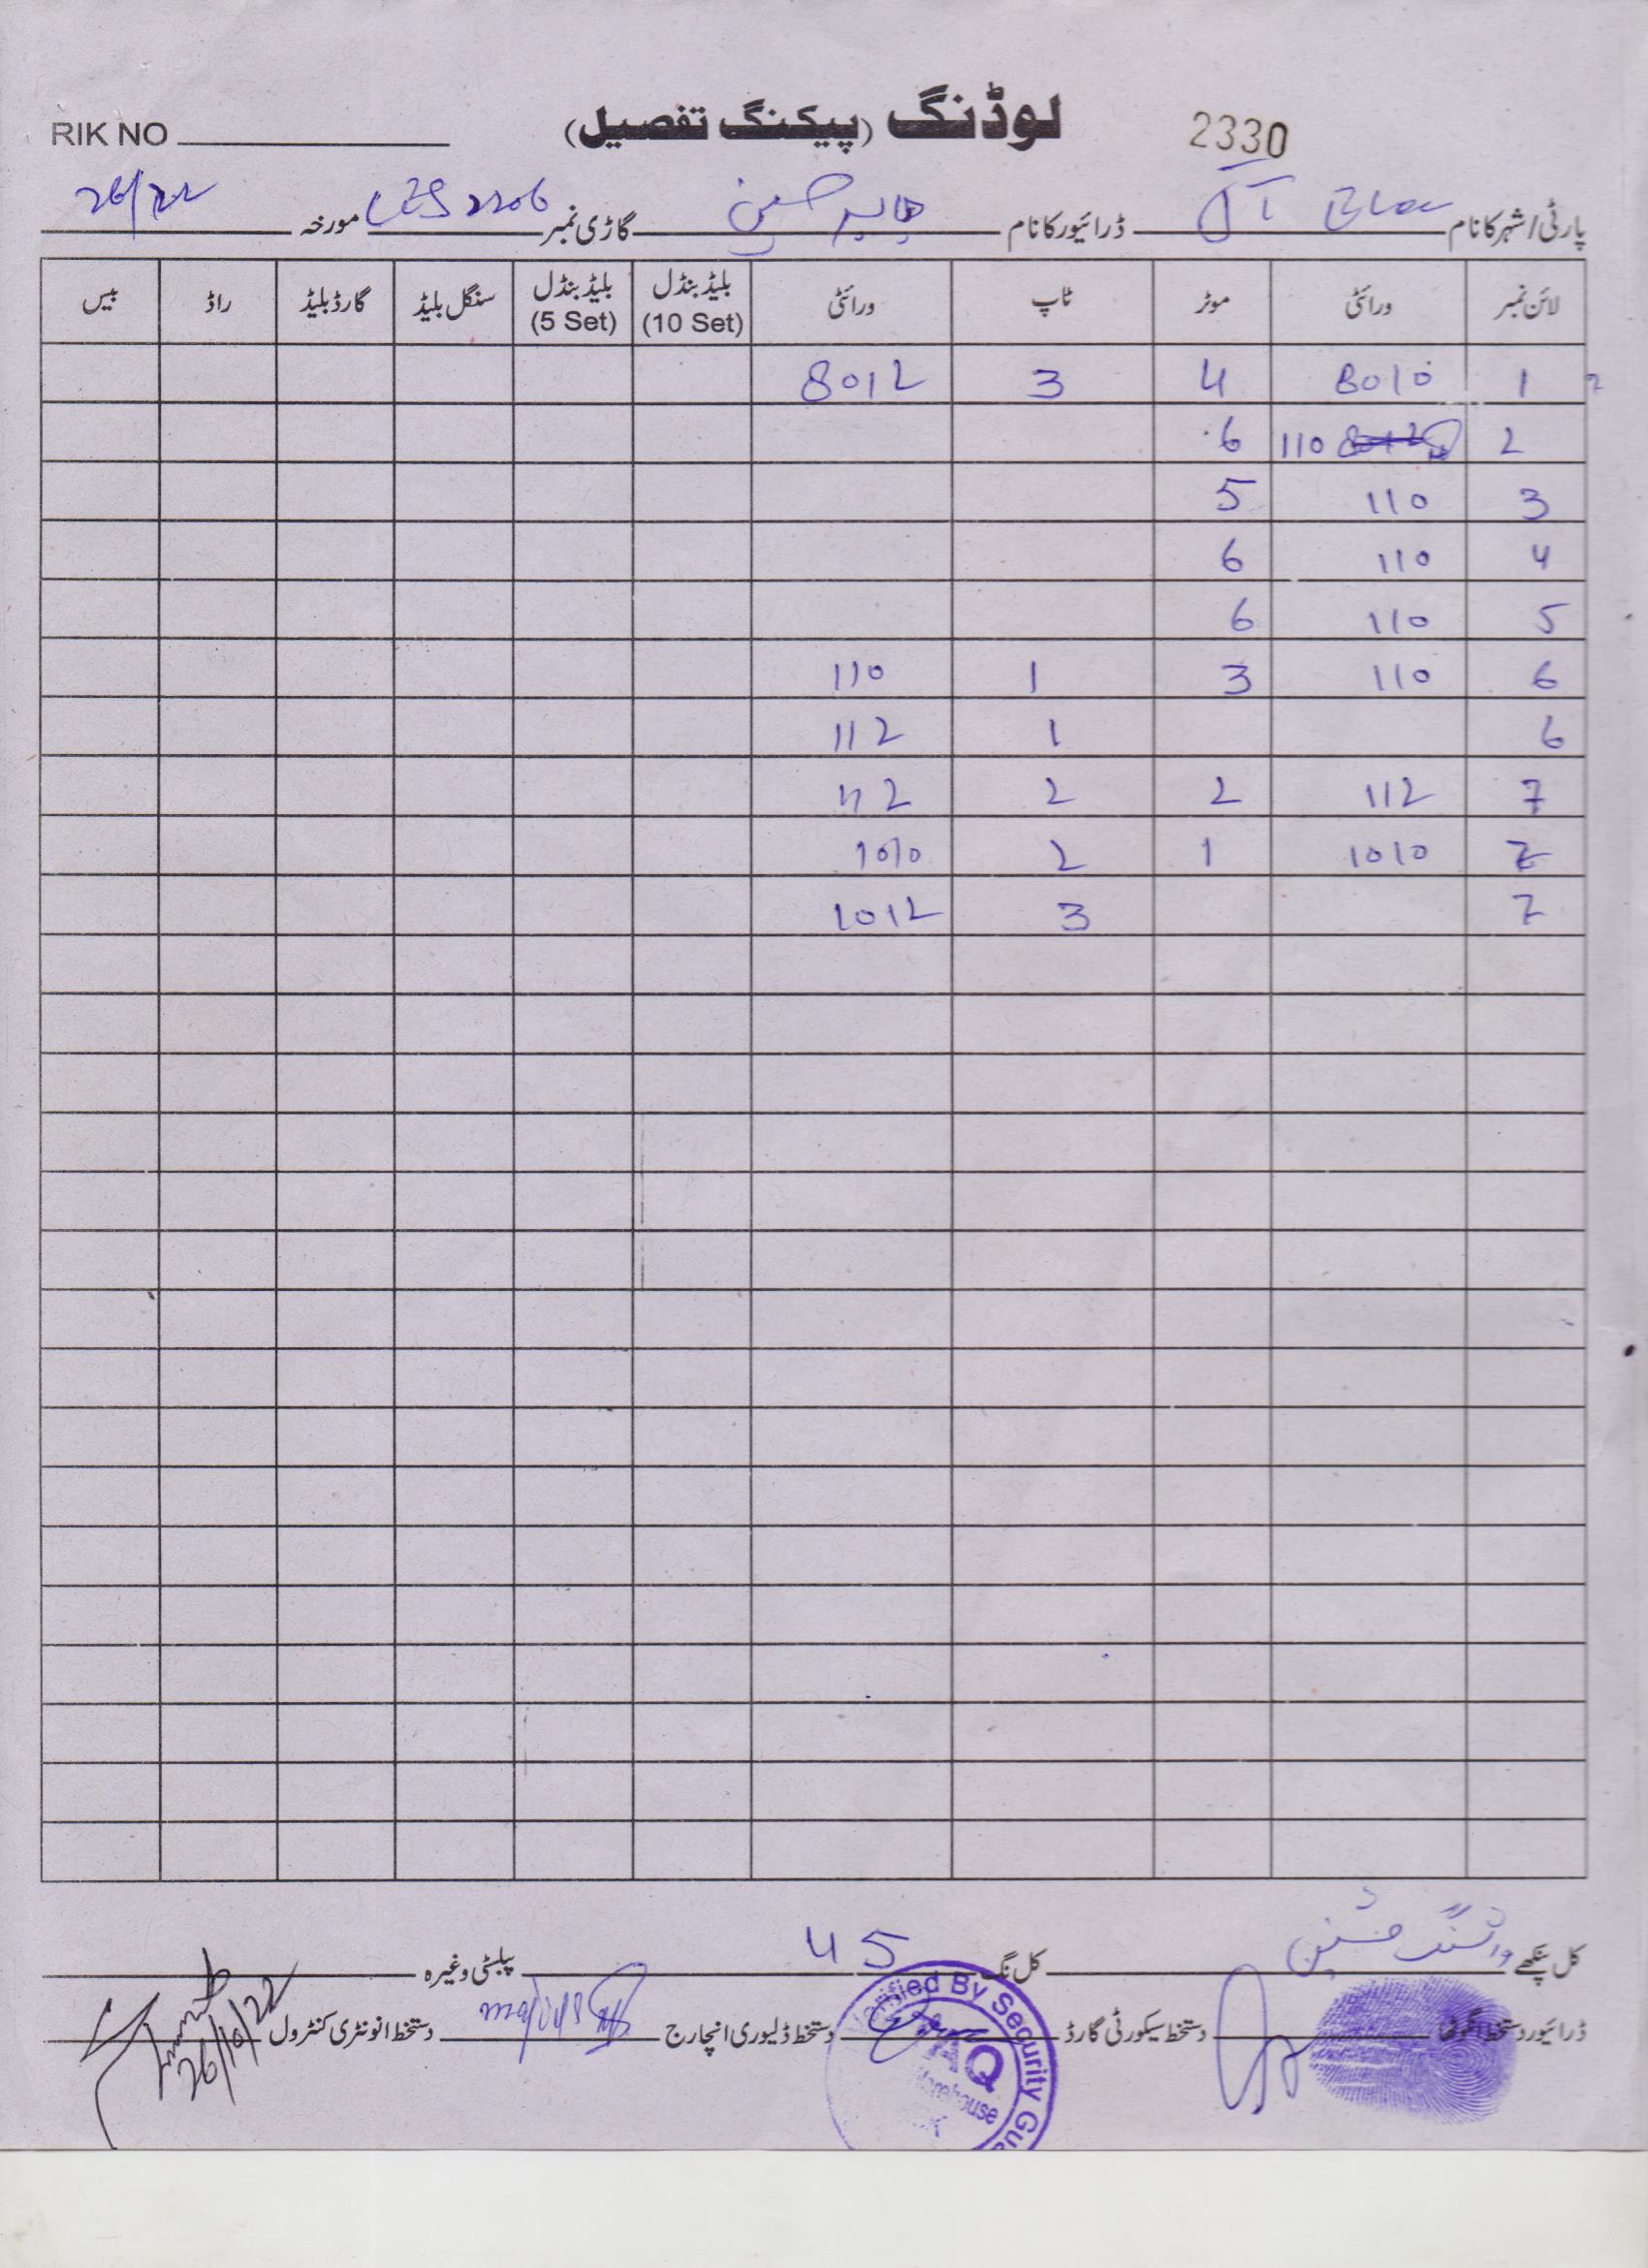 RIK NO
لوڈنگ (پیکنگ تفصیل)
2330
پارٹی/شہر کا نام
ڈرائیور کا نام
گاڑی نمبر LES 2206
مورخہ
لائن نمبر ورائٹی موٹر ٹاپ ورائٹی بلیڈ بنڈل (10 Set) بلیڈ بنڈل (5 Set) سنگل بلیڈ گارڈ بلیڈ راڈ بیس
1 8010 4 3 8012
2 110 6
3 110 5
4 110 6
5 110 6
6 110 3 1 110
6 1 112
7 112 2 2 112
7 1010 1 2 1010
7 3 1012
کل پنکھے واشنگ مشین
کل نگ 45
پبلسٹی وغیرہ
ڈرائیور دستخط/انگوٹھا
دستخط سیکورٹی گارڈ
دستخط ڈلیوری انچارج
دستخط انونٹری کنٹرول
26/10/22
Verified By Security
Warehouse